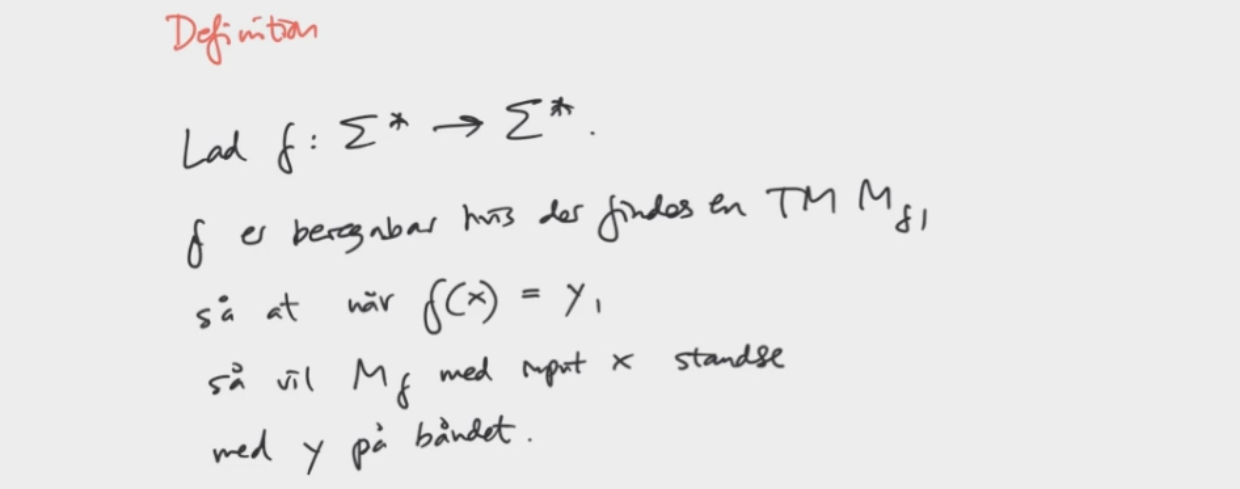 Definition
Lad f: Σ* → Σ*.
f er beregnbar hvis der findes en TM M_f,
så at når f(x) = y,
så vil M_f med input x standse
med y på båndet.